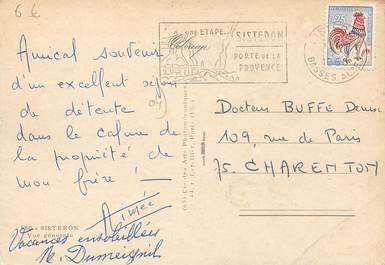 6 €
VOTRE ETAPE
SISTERON
PORTE DE LA
PROVENCE
BASSES ALPES
Amical souvenir
d'un excellent séjour
de détente
dans le calme de
la propriété de
mon frère !
Aimée
Vacances ensoleillées
SISTERON
Vue générale
Docteur BUFFE Denise
109, rue de Paris
75. CHARENTON